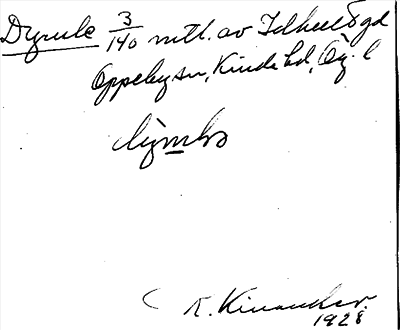 Dymle 3/140 mtl. av Idhult Ögd
Oppeby sn, Kinda hd, Ög. l
R. Kinander.
1928